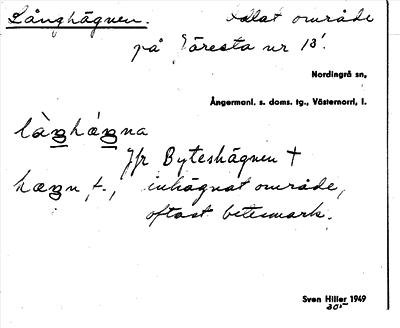 Långhägnen. Odlat område
på Järesta nr 13.
Nordingrå sn,
Ångermanl. s. doms. tg., Västernorrl. l.
làŋhæ̀ŋna
Jfr Byteshägnen +
hæŋn, f., inhägnat område,
oftast betesmark.
Sven Hiller 1949